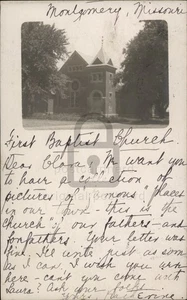 Montgomery, Missouri
First Baptist Church.
Dear Clara: We want you
to have a collection of
pictures of "famous" places
in our town - this is the
church of our fathers - and
forefathers. Your letter was
fine. I'll write just as soon
as I can. I wish you were
here - can't you come with
Laura? Ask your folks